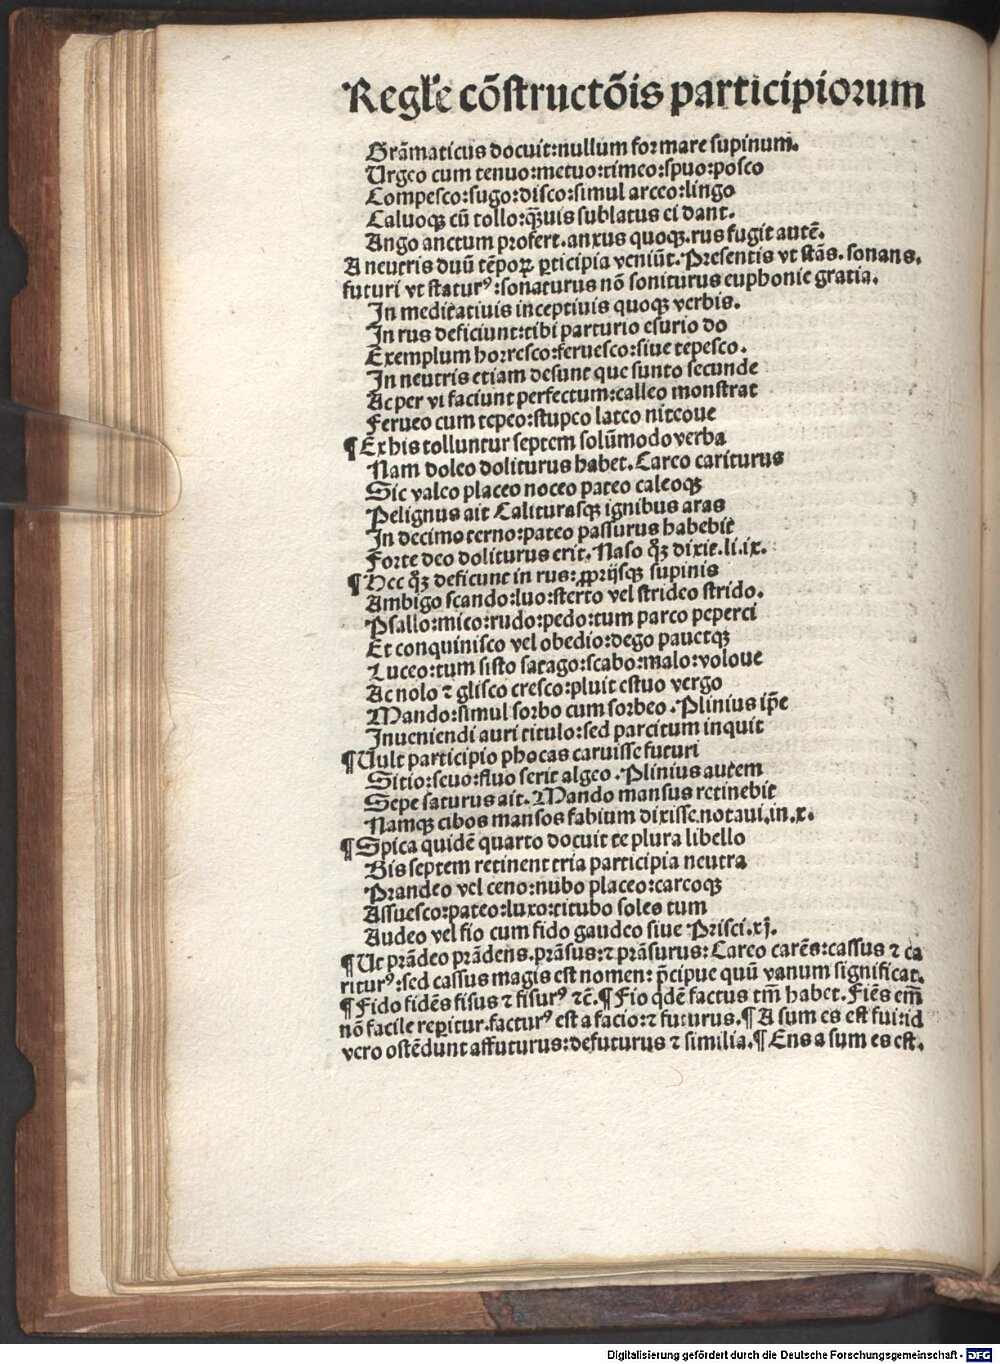 Regl'e cõstructõis participiorum
Grãmaticus docuit:nullum formare supinum.
Urgeo cum tenuo:metuo:timeo:spuo:posco
Compesco:sugo:disco:simul arceo:lingo
Caluoqꝫ cũ tollo:q̃uis sublatus ei dant.
Ango anctum profert.anxus quoqꝫ.rus fugit autẽ.
A neutris duũ tẽpoꝝ ꝑticipia veniũt.Presentis vt stãs.sonans.
futuri vt staturꝰ:sonaturus nõ soniturus euphonie gratia.
In meditatiuis inceptiuis quoqꝫ verbis.
In rus deficiunt:tibi parturio esurio do
Exemplum horresco:feruesco:siue tepesco.
In neutris etiam desunt que sunto secunde
Ac per vi faciunt perfectum:calleo monstrat
Ferueo cum tepeo:stupeo lateo niteoue
¶ Ex his tolluntur septem solũmodo verba
Nam doleo doliturus habet.Careo cariturus
Sic valeo placeo noceo pateo caleoqꝫ
Pelignus ait Caliturasqꝫ ignibus aras
In decimo terno:pateo passurus habebit
Forte deo doliturus erit.Naso qꝫ̃ dixit.li.ix.
¶ Hec qꝫ̃ deficiunt in rus:ꝓprijsqꝫ supinis
Ambigo scando:luo:sterto vel strideo strido.
Psallo:mico:rudo:pedo:tum parco peperci
Et conquinisco vel obedio:dego pauetqꝫ
Luceo:tum sisto satago:scabo:malo:voloue
Ac nolo ⁊ glisco cresco:pluit estuo vergo
Mando:simul sorbo cum sorbeo.Plinius ip̃e
Inueniendi auri titulo:sed parcitum inquit
¶ Uult participio phocas caruisse futuri
Sitio:seuo:fluo ferit algeo.Plinius autem
Sepe saturus ait.Mando mansus retinebit
Namqꝫ cibos mansos fabium dixisse.notaui.in.x.
¶ Spica quidẽ quarto docuit te plura libello
Bis septem retinent tria participia neutra
Prandeo vel ceno:nubo placeo:careoqꝫ
Assuesco:pateo:luxo:titubo soles tum
Audeo vel fio cum fido gaudeo siue Prisci.xj.
¶ Ut prãdeo prãdens.prãsus:⁊ prãsurus:Careo carẽs:cassus ⁊ ca
riturꝰ:sed cassus magis est nomen:p̃cipue quũ vanum significat.
¶ Fido fidẽs fisus ⁊ fisurꝰ ⁊c̃.¶ Fio qdẽ factus tm̃ habet.Fiẽs em̃
nõ facile reꝑitur.facturꝰ est a facio:⁊ futurus.¶ A sum es est fui:id
vero ostẽdunt affuturus:defuturus ⁊ similia.¶ Ens a sum es est.
Digitalisierung gefördert durch die Deutsche Forschungsgemeinschaft - DFG